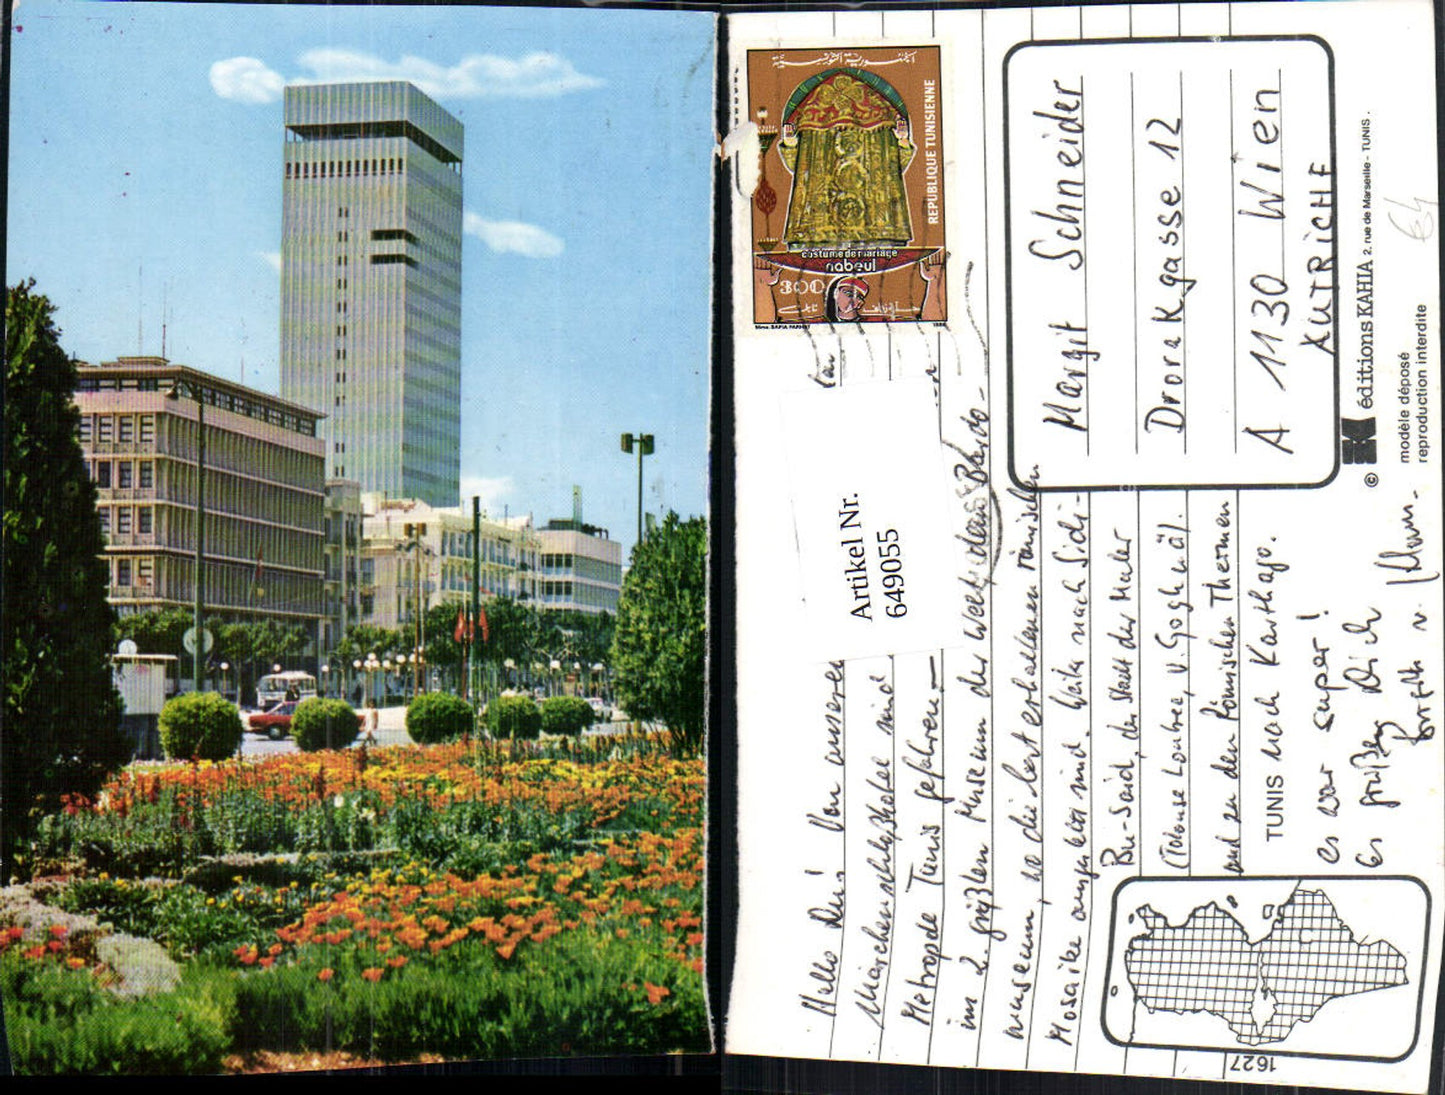 الجمهورية التونسية
REPUBLIQUE TUNISIENNE
costume de mariage
nabeul
300
1986
Margit Schneider
Dvorakgasse 12
A 1130 Wien
AUTRICHE
© éditions KAHIA 2, rue de Marseille - TUNIS.
modèle déposé
reproduction interdite
64
Artikel Nr.
649055
Hallo Du! Von unserer
Menschenschlange sind
Metropole Tunis gefahren –
im 2. größten Museum der Welt, dem Bardo-
museum, wo die best erhaltenen römischen
Mosaike angeboten sind. Weiter nach Sidi-
Bu-Said, der Stadt der Maler
(Toulouse Loutrec, V. Gogh u. ä).
und zu den Römischen Thermen
TUNIS nach Karthago.
es war super!
Es grüßen Dich
1627